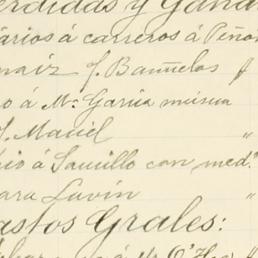 erdidas y Gana
arios á carreros á Peñon
maíz J. Bañuelos
o á M. García música
J. Maciel "
io á Saucillo con med.
ara Lavín "
astos Grales: